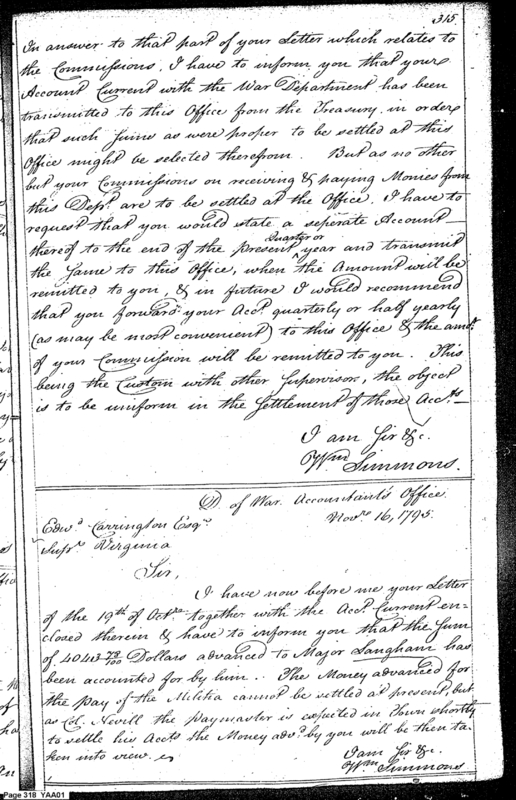 315.
In answer to that part of your Letter which relates to
the Commissions, I have to inform you that your
Account Current with the War Department has been
transmitted to this Office from the Treasury in order
that such Sums as were proper to be settled at this
Office might be selected therefrom. But as no other
but your Commissions on receiving & paying Monies from
this Dept. are to be settled at the Office. I have to
request that you would state a seperate Account
thereof to the end of the present Quarter or year and transmit
the same to this Office, when the Amount will be
remitted to you, & in future I would recommend
that you forward your Acct. quarterly or half yearly
(as may be most convenient) to this Office & the amt.
of your Commission will be remitted to you. This
being the Custom with other Supervisors, the object
is to be uniform in the Settlement of those Accts.
I am Sir &c.
Wm. Simmons.
D of War. Accountant's Office.
Edwd. Carrington Esqr. Novr. 16, 1795.
Supr. Virginia
Sir,
I have now before me your Letter
of the 19th of Octr. together with the Acct. Current en=
closed therein & have to inform you that the Sum
of 4043 73/100 Dollars advanced to Major Langham has
been accounted for by him. The Money advanced for
the pay of the Militia cannot be settled at present, but
as Col. Nevill the paymaster is expected in Town shortly
to settle his Accts the Money advd. by you will be then ta-
ken into view.
I am Sir &c.
Wm. Simmons.
Page 318 YAA01